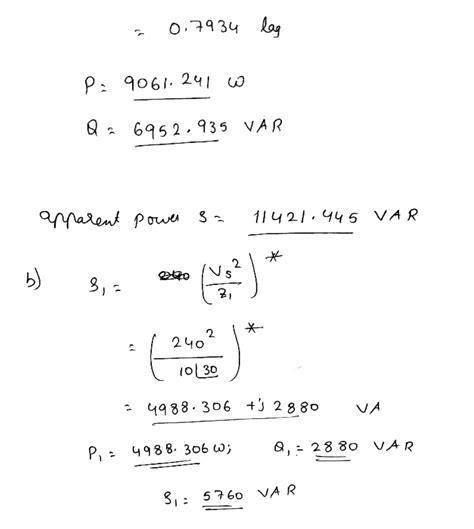 = 0.7934 lag
P = 9061.241 W
Q = 6952.935 VAR
apparent power S = 11421.445 VAR
b) S₁ = (Vs²/Z₁)*
= (240²/10∠30)*
= 4988.306 + j 2880 VA
P₁ = 4988.306 W; Q₁ = 2880 VAR
S₁ = 5760 VAR